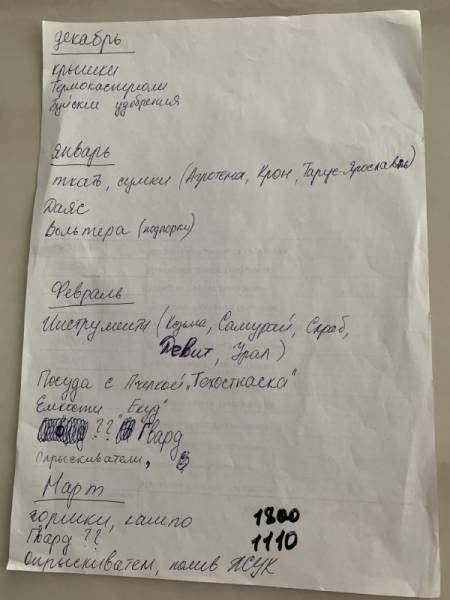 декабрь
крышки
Термокастрюли
Буйские удобрения
январь
ткать, сумки (Агротема, Крон, Тарус-Ярославль)
Даяс
Вольтера (подпорки)
Февраль
Инструменты (Козьма, Самурай, Скраб,
Девит, Урал)
Посуда с
Емкости "Екуд"
?? Гвард
Опрыскиватели,
Март
кормики, кашпо 1800
Гвард ?? 1110
Опрыскиватем, полив ЖУК